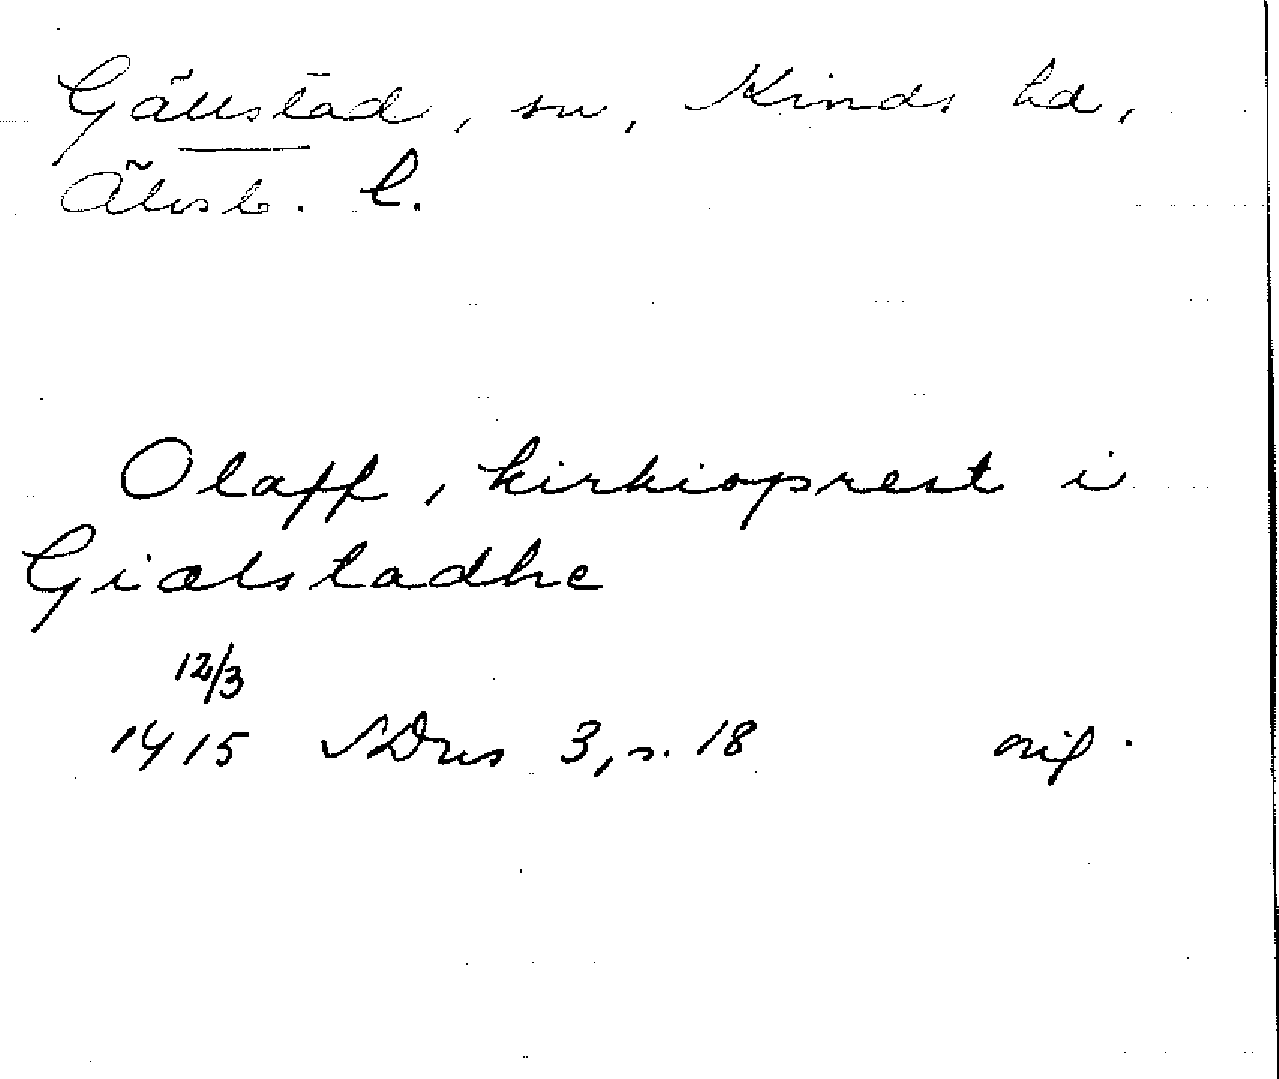 Gällstad, sn, Kinds hd,
Älvsb. l.
Olaff, kirkioprest i
Giælstadhe
12/3
1415 SDns 3, s. 18 orig.